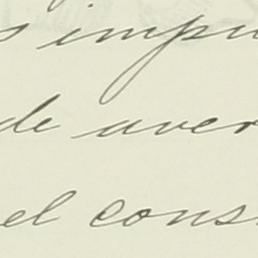 s impu
de aver
el cons